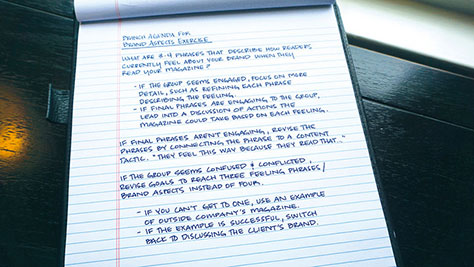 DESIGN AGENDA FOR
BRAND ASPECTS EXERCISE
WHAT ARE 3-4 PHRASES THAT DESCRIBE HOW READERS
CURRENTLY FEEL ABOUT YOUR BRAND WHEN THEY
READ YOUR MAGAZINE?
- IF THE GROUP SEEMS ENGAGED, FOCUS ON MORE
DETAIL, SUCH AS REFINING EACH PHRASE
DESCRIBING THE FEELING.
- IF FINAL PHRASES ARE ENGAGING TO THE GROUP,
LEAD INTO A DISCUSSION OF ACTIONS THE
MAGAZINE COULD TAKE BASED ON EACH FEELING.
IF FINAL PHRASES AREN'T ENGAGING, REVISE THE
PHRASES BY CONNECTING THE PHRASE TO A CONTENT
TACTIC. "THEY FEEL THIS WAY BECAUSE THEY READ THAT..."
IF THE GROUP SEEMS CONFUSED & CONFLICTED,
REVISE GOALS TO REACH THREE FEELING PHRASES/
BRAND ASPECTS INSTEAD OF FOUR.
- IF YOU CAN'T GET TO ONE, USE AN EXAMPLE
OF OUTSIDE COMPANY'S MAGAZINE.
- IF THE EXAMPLE IS SUCCESSFUL, SWITCH
BACK TO DISCUSSING THE CLIENT'S BRAND.